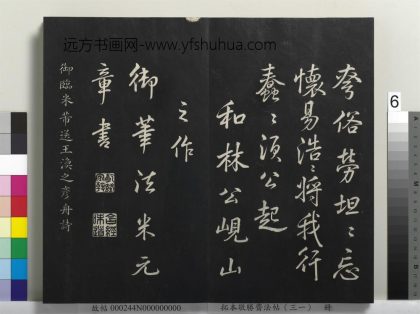 远方书画网-www.yfshuhua.com
夸俗勞坦〻忘
懷易浩〻將我行
蠢〻須公起
和林公峴山
之作
御筆法米元
章書
御臨米芾送王渙之彥舟詩
6
故帖 000244N000000000
拓本敬勝齋法帖（三一） 冊